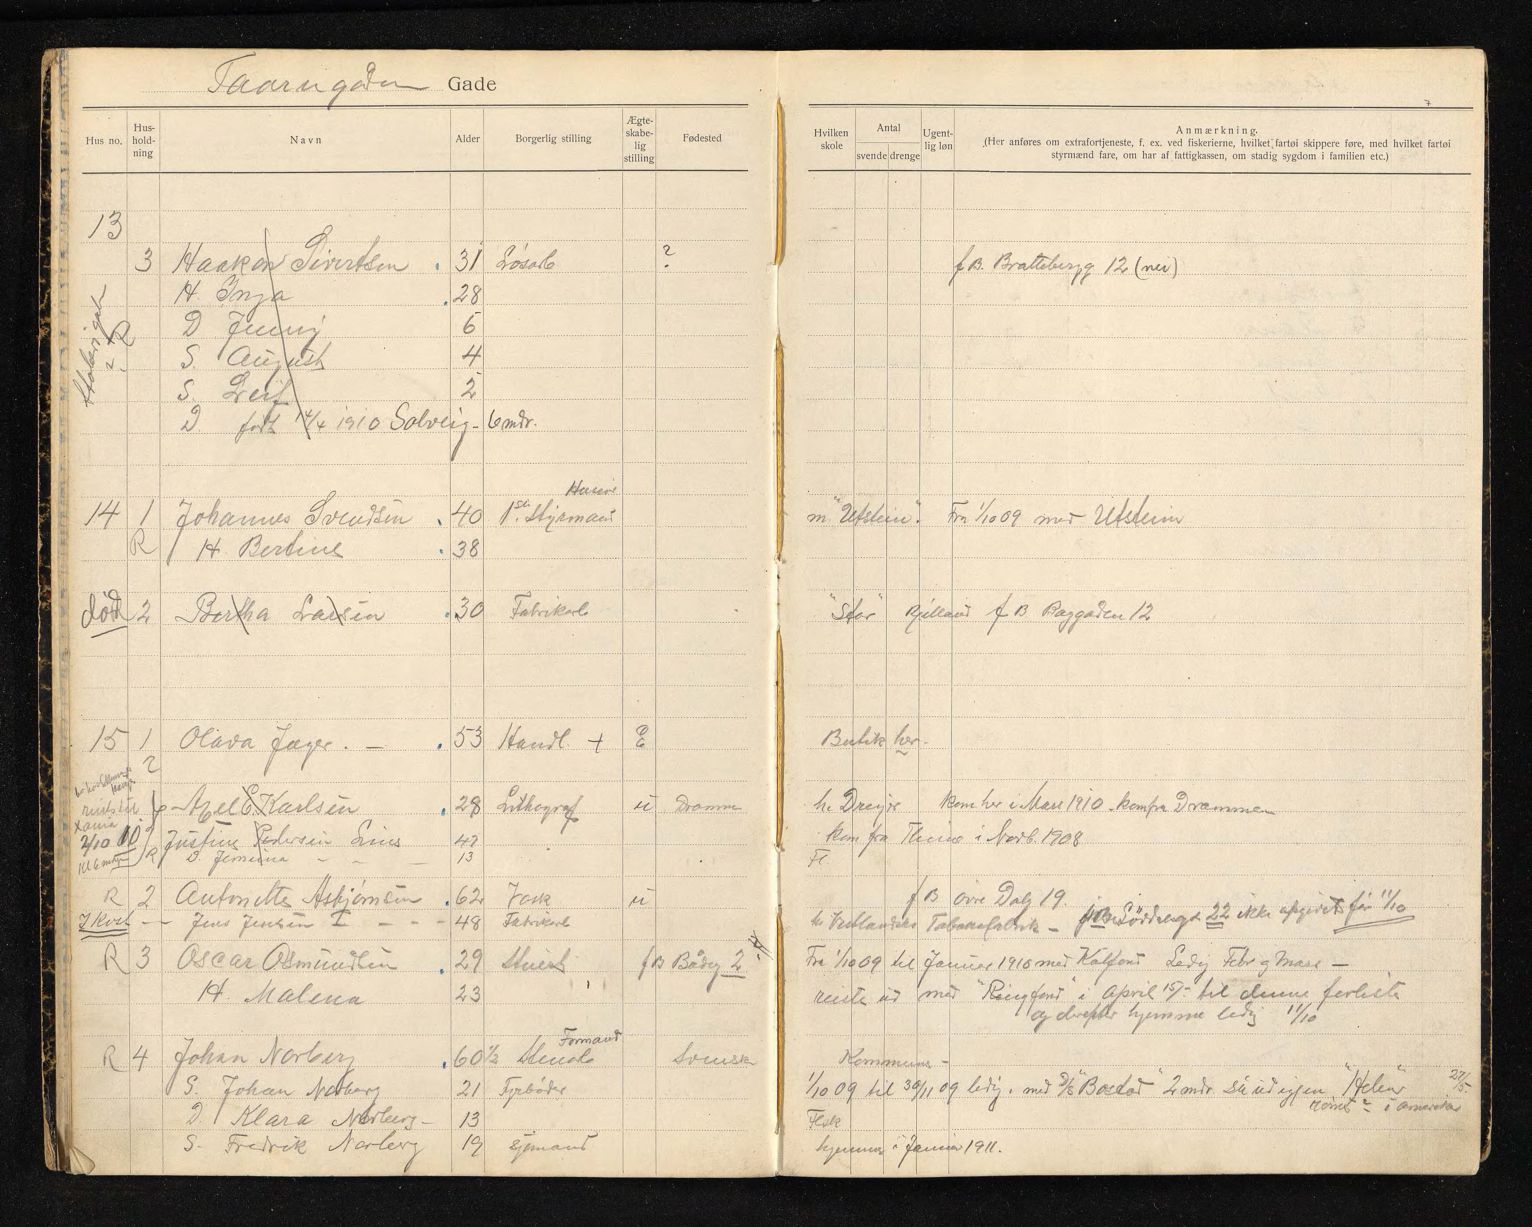 Taarngaden Gade
Hus no. Hus-hold-ning Navn Alder Borgerlig stilling Ægte-skabe-lig stilling Fødested Hvilken skole Antal svende drenge Ugent-lig løn Anmærkning.
(Her anføres om extrafortjeneste, f. ex. ved fiskerierne, hvilket fartøi skippere føre, med hvilket fartøi styrmænd fare, om har af fattigkassen, om stadig sygdom i familien etc.)
13
3 Haakon Sivertsen 31 Løsarb ? f B. Bratteberg 12 (nei)
H. Inga 28
D Jenny 6
S. August 4
S. Leif 2
D født 14/4 1910 Solveig - 6 mdr.
R
14 1 Johannes Svendsen 40 1ste Styrmand m "Utstein". Fra 1/10 09 med Utstein
R H. Bertine 38
død 2 Bertha Larsen 30 Fabrikarb "Star" f B Baggaden 12
15 1 Olava Jæger. — 53 Handl + E Butik her.
2
reist til
2/10 10
Axel E. Karlsen 28 Lithograf u Drammen h. Dreyer kom her i Mars 1910 kom fra Drammen
R Justine Pedersen Lines 42 kom fra i Novb. 1908
D. Jemima - - — 13 Fl
R 2 Antonette Asbjørnsen 62 Vask u f B øvre Dalg 19.
Jens Jensen I - - 48 Fabrikarb h. Vestlandske Tobaksfabrik — 22 ikke opgivet før 11/10
R 3 Oscar Osmundsen 29 Stuert f B Bådeg 2 Fra 1/10 09 til Januar 1910 med Ledig Febr og Mars —
H. Malena 23 reiste ud med "Ringfond" i April 15/- til denne forliste
og derefter hjemme ledig 11/10
Formand
R 4 Johan Norberg 60 1/2 Stenarb Svensk Kommune -
S. Johan Norberg 21 Fyrbøder 1/10 09 til 30/11 09 ledig. med D/S "Boston" 2 mdr. så ud igjen "Helen" 27/5.
rømt i Amerika
D. Klara Norberg — 13 Flsk
S. Fredrik Norberg 19 Sjømand hjemme i Januar 1911.